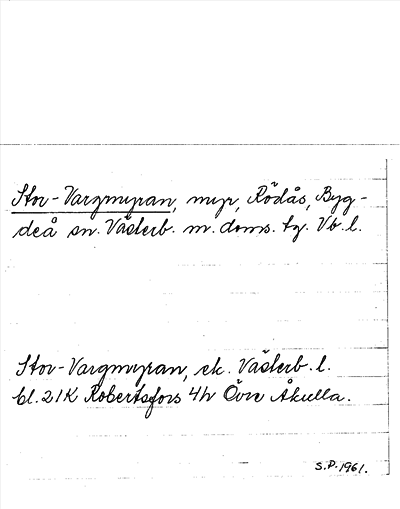 Stor-Vargmyran, myr, Rödås, Byg-
deå sn. Västerb. m. doms. tg. Vb. l.
Stor-Vargmyran, ek. Västerb. l.
bl. 21K Robertsfors 4h Övre Åkulla.
S.P. 1961.